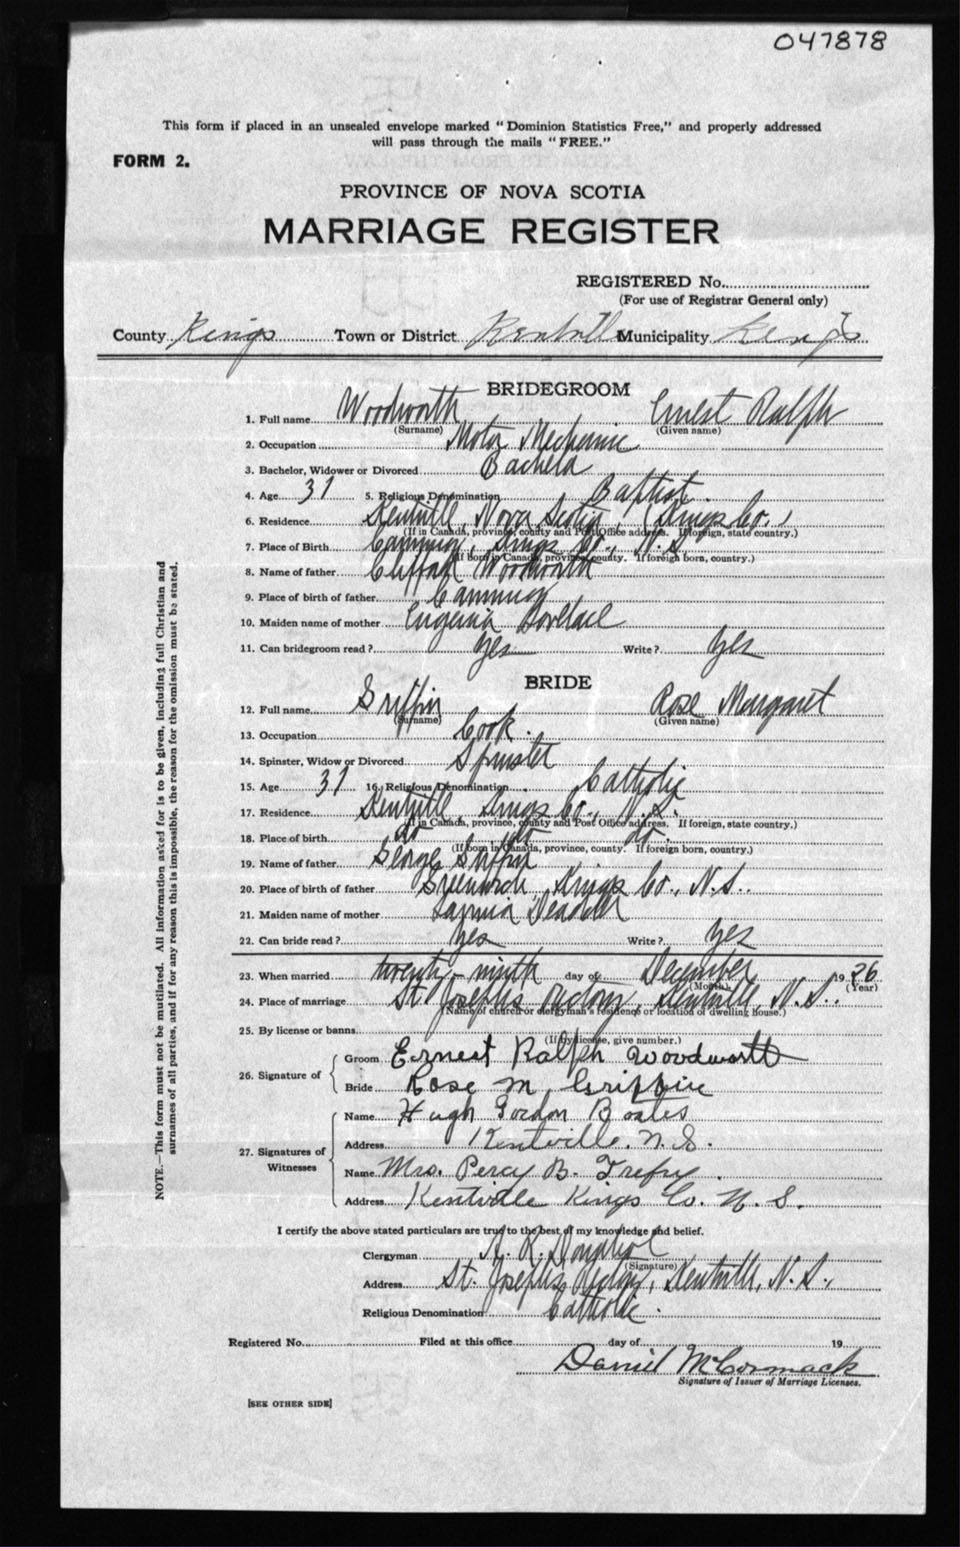 047878
This form if placed in an unsealed envelope marked "Dominion Statistics Free," and properly addressed
will pass through the mails "FREE."
FORM 2.
PROVINCE OF NOVA SCOTIA
MARRIAGE REGISTER
REGISTERED No.
(For use of Registrar General only)
County Kings Town or District Kentville Municipality Kings
BRIDEGROOM
1. Full name Woodworth Ernest Ralph
(Surname) (Given name)
2. Occupation Motor Mechanic
3. Bachelor, Widower or Divorced Bachelor
4. Age 31 5. Religious Denomination Baptist.
6. Residence Kentville, Nova Scotia, (Kings Co.)
(If in Canada, province, county and Post Office address. If foreign, state country.)
7. Place of Birth Canning, Kings Co., N.S.
(If born in Canada, province, county. If foreign born, country.)
8. Name of father Clifford Woodworth
9. Place of birth of father Canning
10. Maiden name of mother Eugenia Lovelace
11. Can bridegroom read? Yes Write? Yes
BRIDE
12. Full name Griffin Rose Margaret
(Surname) (Given name)
13. Occupation Cook.
14. Spinster, Widow or Divorced Spinster
15. Age 31 16. Religious Denomination Catholic
17. Residence Kentville, Kings Co., N.S.
(If in Canada, province, county and Post Office address. If foreign, state country.)
18. Place of birth do do do.
(If born in Canada, province, county. If foreign born, country.)
19. Name of father George Griffin
20. Place of birth of father Greenwich, Kings Co., N.S.
21. Maiden name of mother
22. Can bride read? Yes Write? Yes
23. When married twenty-ninth day of December 1926
(Month) (Year)
24. Place of marriage St Joseph's Rectory, Kentville, N.S.
(Name of church or clergyman's residence or location of dwelling house.)
25. By license or banns
(If by license, give number.)
26. Signature of
Groom Ernest Ralph Woodworth
Bride Rose M Griffin
27. Signatures of Witnesses
Name Hugh Gordon Boates
Address Kentville. N.S.
Name Mrs. Percy B. Trefry.
Address Kentville Kings Co. N.S.
I certify the above stated particulars are true to the best of my knowledge and belief.
Clergyman
(Signature)
Address St. Joseph's Rectory, Kentville, N.S.,
Religious Denomination Catholic.
Registered No. Filed at this office day of 19
Daniel McCormack
Signature of Issuer of Marriage Licenses.
[SEE OTHER SIDE]
NOTE.—This form must not be mutilated. All information asked for is to be given, including full Christian and
surnames of all parties, and if for any reason this is impossible, the reason for the omission must be stated.